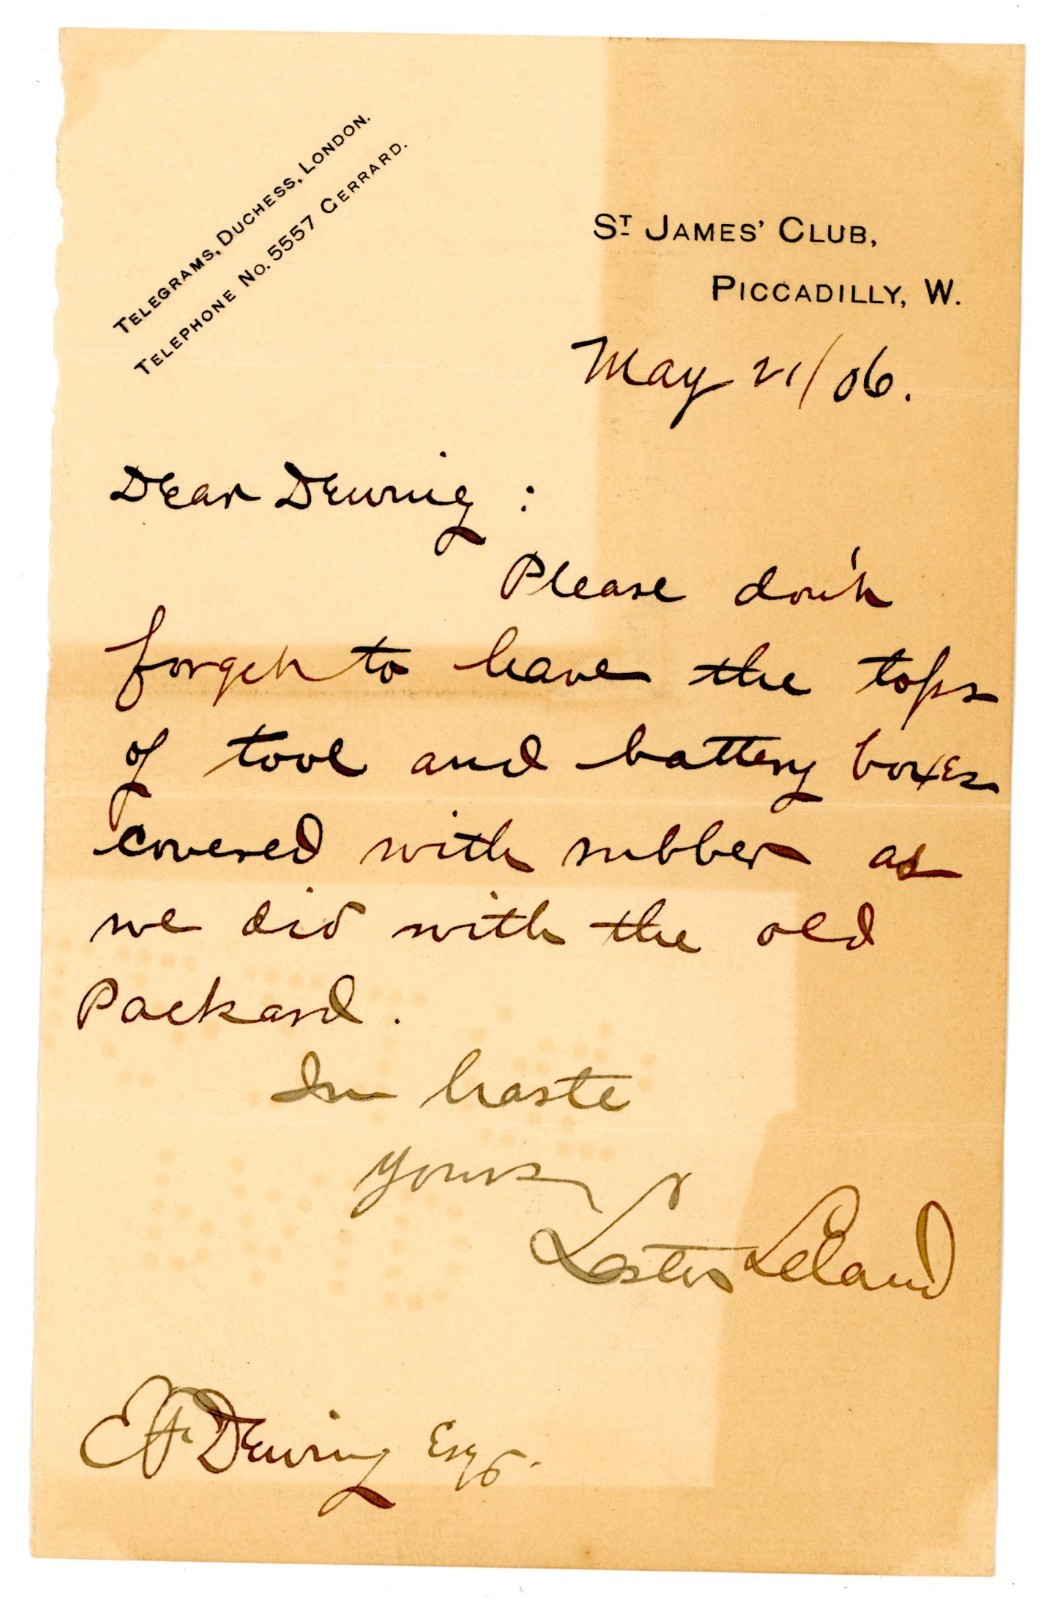 TELEGRAMS, DUCHESS, LONDON.
TELEPHONE NO. 5557 GERRARD.
ST JAMES' CLUB,
PICCADILLY, W.
May 21/06.
Dear Dewing:
Please don't
forget to have the tops
of tool and battery boxes
covered with rubber as
we did with the old
Packard.
In haste
Yours
Lester Leland
E F Dewing Esq.